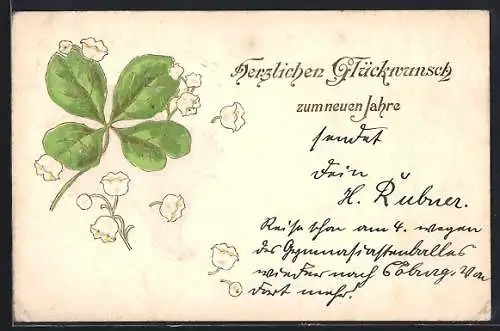 Herzlichen Glückwunsch
zum neuen Jahre
sendet
Dein
H. Rübner.
Reise schon am 4. wegen
des Gymnasiastenballes
wieder nach Coburg. Von
dort mehr!